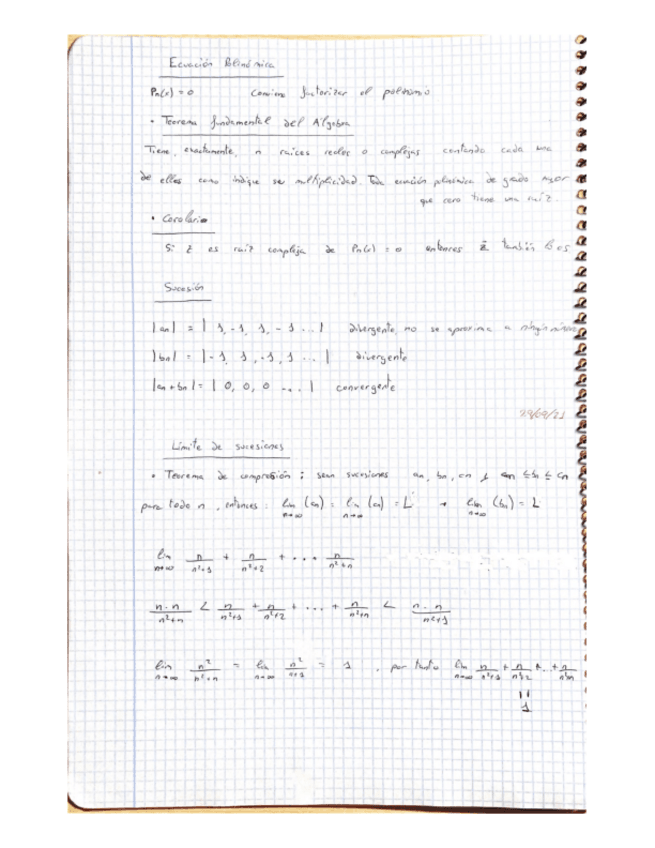 Ecuación Polinómica
Pn(x) = 0 Conviene factorizar el polinomio
• Teorema fundamental del Álgebra
Tiene, exactamente, n raíces reales o complejas contando cada una
de ellas como indique su multiplicidad. Toda ecuación polinómica de grado mayor
que cero tiene una raíz.
• Corolario
Si z es raíz compleja de Pn(x) = 0 entonces z̄ también lo es
Sucesión
|an| = | 1, -1, 1, -1 ... | divergente, no se aproxima a ningún número
|bn| = |-1, 1, -1, 1 ... | divergente
|an + bn| = | 0, 0, 0 ... | convergente
29/09/21
Límite de sucesiones
• Teorema de compresión: sean sucesiones an, bn, cn y an ≤ bn ≤ cn
para todo n, entonces: lim n→∞ (an) = lim n→∞ (cn) = L → lim n→∞ (bn) = L
lim n→∞ n/(n²+1) + n/(n²+2) + ... n/(n²+n)
n·n/(n²+n) < n/(n²+1) + n/(n²+2) + ... + n/(n²+n) < n·n/(n²+1)
lim n→∞ n²/(n²+n) = lim n→∞ n²/(n+1) = 1, por tanto lim n→∞ n/(n²+1) + n/(n²+2) + ... + n/(n²+n)
=
1